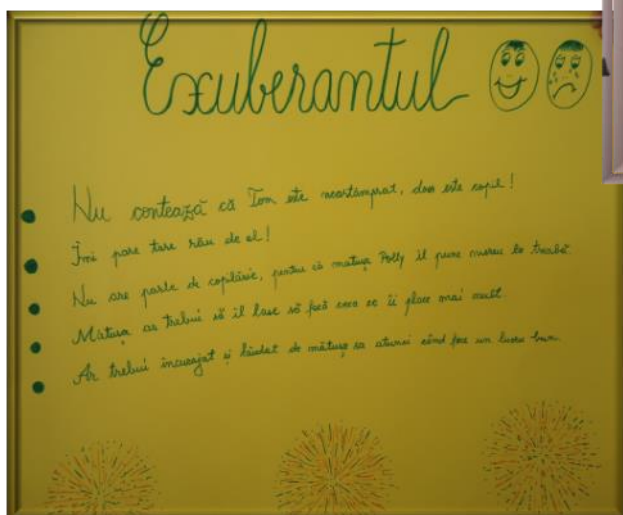 Exuberantul
Nu contează că Tom este neastâmpărat, doar este copil!
Îmi pare tare rău de el!
Nu are parte de copilărie, pentru că mătușa Polly îl pune mereu la treabă.
Mătușa ar trebui să îl lase să facă ceea ce îi place mai mult.
Ar trebui încurajat și lăudat de mătușa sa atunci când face un lucru bun.